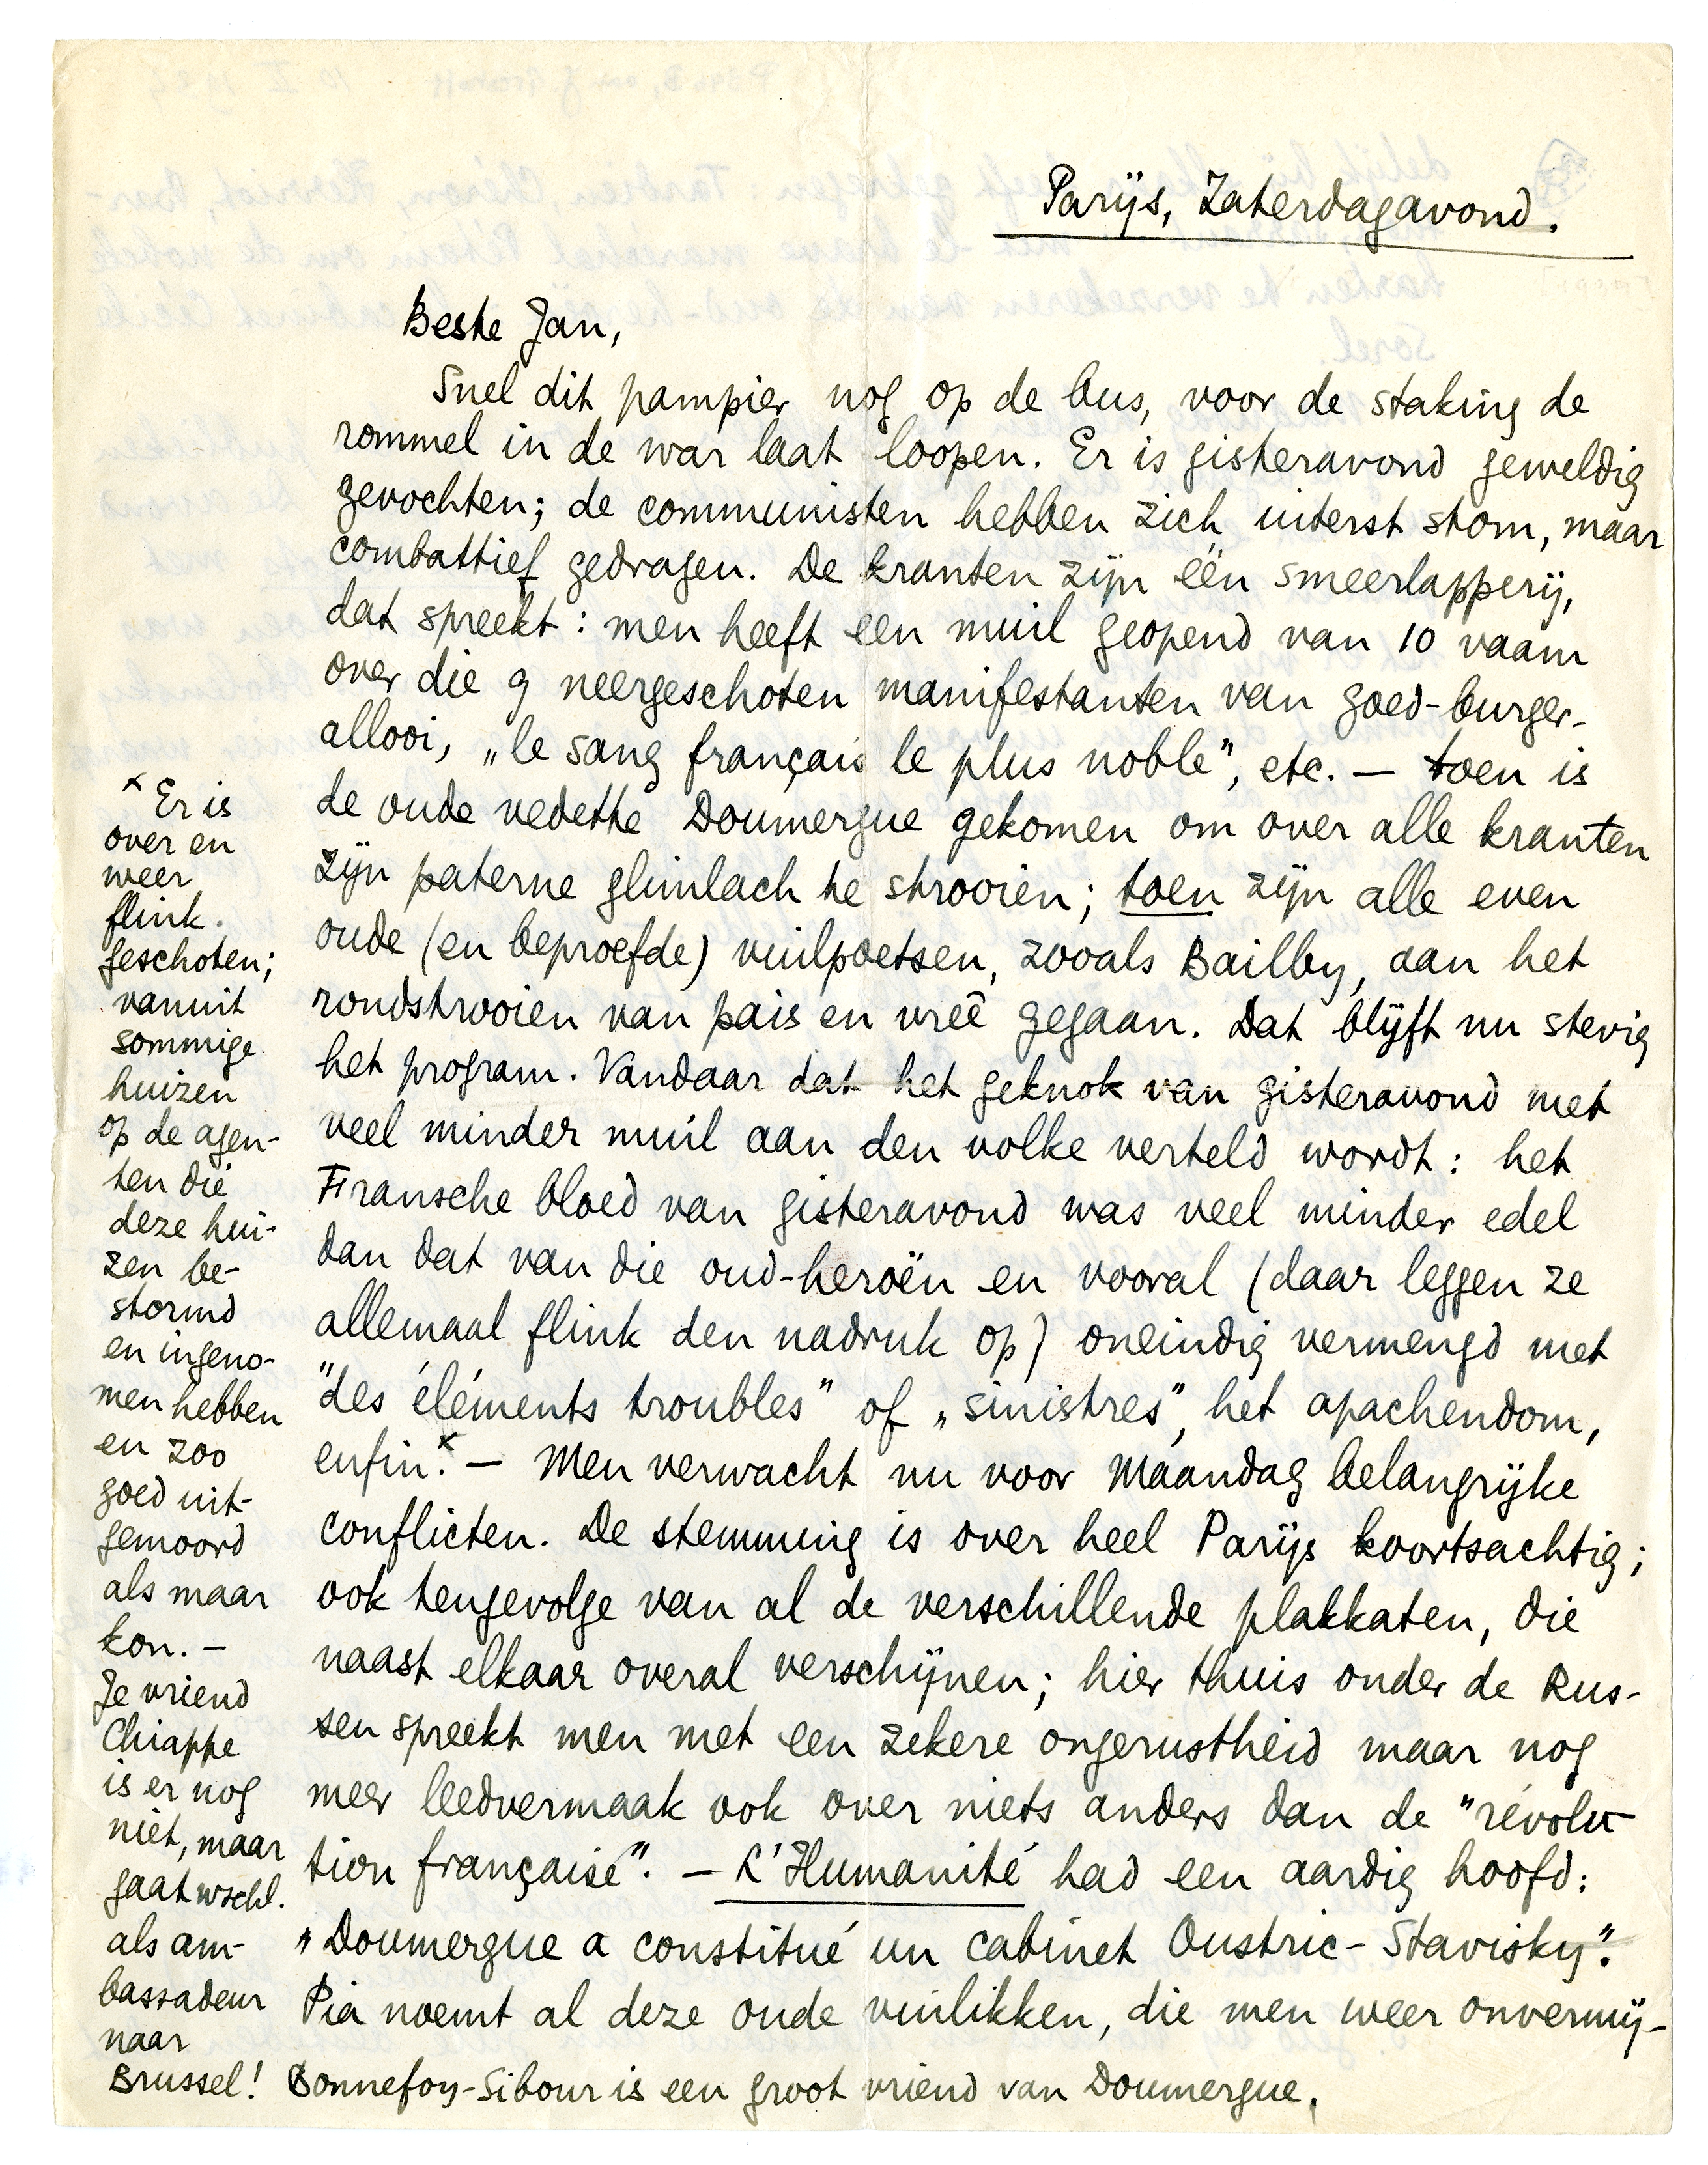 Parijs, Zaterdagavond.
Beste Jan,
Snel dit pampier nog op de bus, voor de staking de
rommel in de war laat loopen. Er is gisteravond geweldig
gevochten; de communisten hebben zich uiterst stom, maar
combattief gedragen. De kranten zijn één smeerlapperij,
dat spreekt: men heeft een muil geopend van 10 vaam
over die 9 neergeschoten manifestanten van goed-burger-
allooi, „le sang français le plus noble", etc. — toen is
de oude vedette Doumergue gekomen om over alle kranten
zijn paterne glimlach te strooien; toen zijn alle even
oude (en beproefde) vuilpoetsen, zooals Bailby, aan het
rondstrooien van pais en vreê gegaan. Dat blijft nu stevig
het program. Vandaar dat het geknok van gisteravond met
veel minder muil aan den volke verteld wordt: het
Fransche bloed van gisteravond was veel minder edel
dan dat van die oud-heroën en vooral (daar leggen ze
allemaal flink den nadruk op) oneindig vermengd met
"des éléments troubles" of „sinistres", het apachendom,
enfin.x — Men verwacht nu voor Maandag belangrijke
conflicten. De stemming is over heel Parijs koortsachtig;
ook tengevolge van al de verschillende plakkaten, die
naast elkaar overal verschijnen; hier thuis onder de Rus-
sen spreekt men met een zekere ongerustheid maar nog
meer leedvermaak ook over niets anders dan de "révolu-
tion française". — L'Humanité had een aardig hoofd:
"Doumergue a constitué un cabinet Oustric-Stavisky".
Pia noemt al deze oude vuilikken, die men weer onvermij-
x Er is
over en
weer
flink
geschoten;
vanuit
sommige
huizen
op de agen-
ten die
deze hui-
zen be-
stormd
en ingeno-
men hebben
en zoo
goed uit-
gemoord
als maar
kon. —
Je vriend
Chiappe
is er nog
niet, maar
gaat wschl.
als am-
bassadeur
naar
Brussel! Bonnefoy-Sibour is een groot vriend van Doumergue.